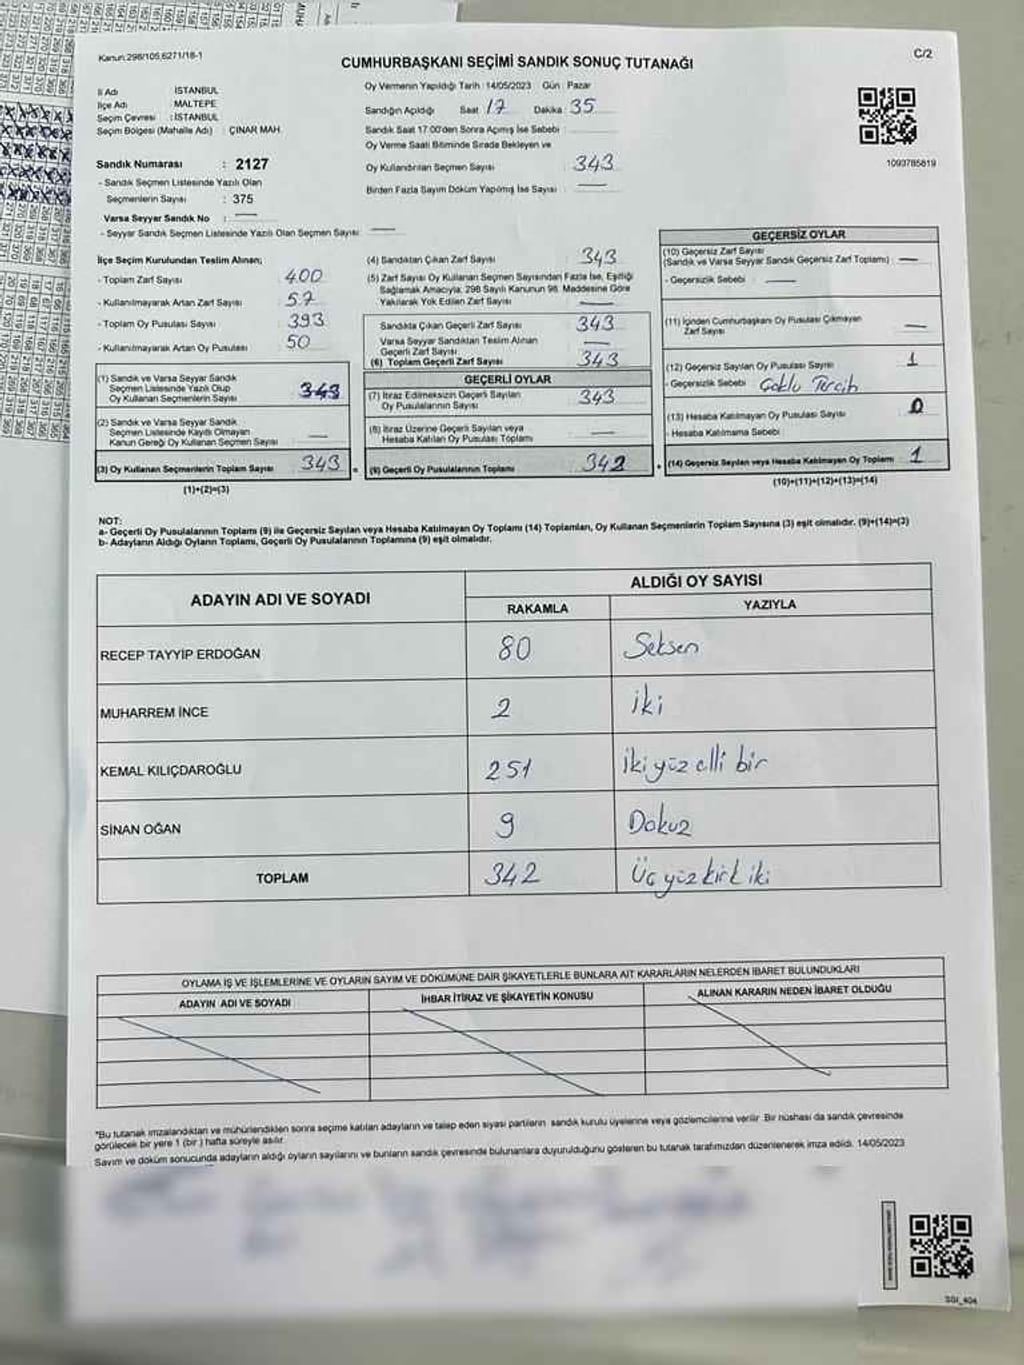 Kanun:298/105,6271/18-1
C/2
CUMHURBAŞKANI SEÇİMİ SANDIK SONUÇ TUTANAĞI
İl Adı : İSTANBUL
İlçe Adı : MALTEPE
Seçim Çevresi : İSTANBUL
Seçim Bölgesi (Mahalle Adı) : ÇINAR MAH.
Sandık Numarası : 2127
- Sandık Seçmen Listesinde Yazılı Olan
Seçmenlerin Sayısı : 375
Varsa Seyyar Sandık No :
- Seyyar Sandık Seçmen Listesinde Yazılı Olan Seçmen Sayısı:
Oy Vermenin Yapıldığı Tarih :14/05/2023 Gün : Pazar
Sandığın Açıldığı Saat : 17 Dakika : 35
Sandık Saat 17:00'den Sonra Açımış İse Sebebi :
Oy Verme Saati Bitiminde Sırada Bekleyen ve
Oy Kullandırılan Seçmen Sayısı : 343
Birden Fazla Sayım Döküm Yapılmış İse Sayısı :
1093785819
İlçe Seçim Kurulundan Teslim Alınan;
- Toplam Zarf Sayısı : 400
- Kullanılmayarak Artan Zarf Sayısı : 57
- Toplam Oy Pusulası Sayısı : 393
- Kullanılmayarak Artan Oy Pusulası : 50
(1) Sandık ve Varsa Seyyar Sandık
Seçmen Listesinde Yazılı Olup
Oy Kullanan Seçmenlerin Sayısı : 343
(2) Sandık ve Varsa Seyyar Sandık
Seçmen Listesinde Kayıtlı Olmayan
Kanun Gereği Oy Kullanan Seçmen Sayısı
(3) Oy Kullanan Seçmenlerin Toplam Sayısı : 343
(1)+(2)=(3)
(4) Sandıktan Çıkan Zarf Sayısı : 343
(5) Zarf Sayısı Oy Kullanan Seçmen Sayısından Fazla İse, Eşitliği
Sağlamak Amacıyla; 298 Sayılı Kanunun 98. Maddesine Göre
Yakılarak Yok Edilen Zarf Sayısı
Sandıkta Çıkan Geçerli Zarf Sayısı : 343
Varsa Seyyar Sandıktan Teslim Alınan
Geçerli Zarf Sayısı
(6) Toplam Geçerli Zarf Sayısı : 343
GEÇERLİ OYLAR
(7) İtiraz Edilmeksizin Geçerli Sayılan
Oy Pusulalarının Sayısı : 343
(8) İtiraz Üzerine Geçerli Sayılan veya
Hesaba Katılan Oy Pusulası Toplamı
(9) Geçerli Oy Pusulalarının Toplamı : 342
GEÇERSİZ OYLAR
(10) Geçersiz Zarf Sayısı
(Sandık ve Varsa Seyyar Sandık Geçersiz Zarf Toplamı) :
- Geçersizlik Sebebi :
(11) İçinden Cumhurbaşkanı Oy Pusulası Çıkmayan
Zarf Sayısı
(12) Geçersiz Sayılan Oy Pusulası Sayısı : 1
- Geçersizlik Sebebi Çoklu Tercih
(13) Hesaba Katılmayan Oy Pusulası Sayısı : 0
- Hesaba Katılmama Sebebi
(14) Geçersiz Sayılan veya Hesaba Katılmayan Oy Toplamı : 1
(10)+(11)+(12)+(13)=(14)
NOT:
a- Geçerli Oy Pusulalarının Toplamı (9) ile Geçersiz Sayılan veya Hesaba Katılmayan Oy Toplamı (14) Toplamları, Oy Kullanan Seçmenlerin Toplam Sayısına (3) eşit olmalıdır. (9)+(14)=(3)
b- Adayların Aldığı Oyların Toplamı, Geçerli Oy Pusulalarının Toplamına (9) eşit olmalıdır.
ADAYIN ADI VE SOYADI ALDIĞI OY SAYISI
RAKAMLA YAZIYLA
RECEP TAYYİP ERDOĞAN 80 Seksen
MUHARREM İNCE 2 iki
KEMAL KILIÇDAROĞLU 251 ikiyüz elli bir
SİNAN OĞAN 9 Dokuz
TOPLAM 342 Üç yüz kırk iki
OYLAMA İŞ VE İŞLEMLERİNE VE OYLARIN SAYIM VE DÖKÜMÜNE DAİR ŞİKAYETLERLE BUNLARA AİT KARARLARIN NELERDEN İBARET BULUNDUKLARI
ADAYIN ADI VE SOYADI İHBAR İTİRAZ VE ŞİKAYETİN KONUSU ALINAN KARARIN NEDEN İBARET OLDUĞU
*Bu tutanak imzalandıktan ve mühürlendikten sonra seçime katılan adayların ve talep eden siyasi partilerin sandık kurulu üyelerine veya gözlemcilerine verilir. Bir nüshası da sandık çevresinde
görülecek bir yere 1 (bir ) hafta süreyle asılır.
Sayım ve döküm sonucunda adayların aldığı oyların sayılarını ve bunların sandık çevresinde bulunanlara duyurulduğunu gösteren bu tutanak tarafımızdan düzenlenerek imza edildi. 14/05/2023
SGI_404